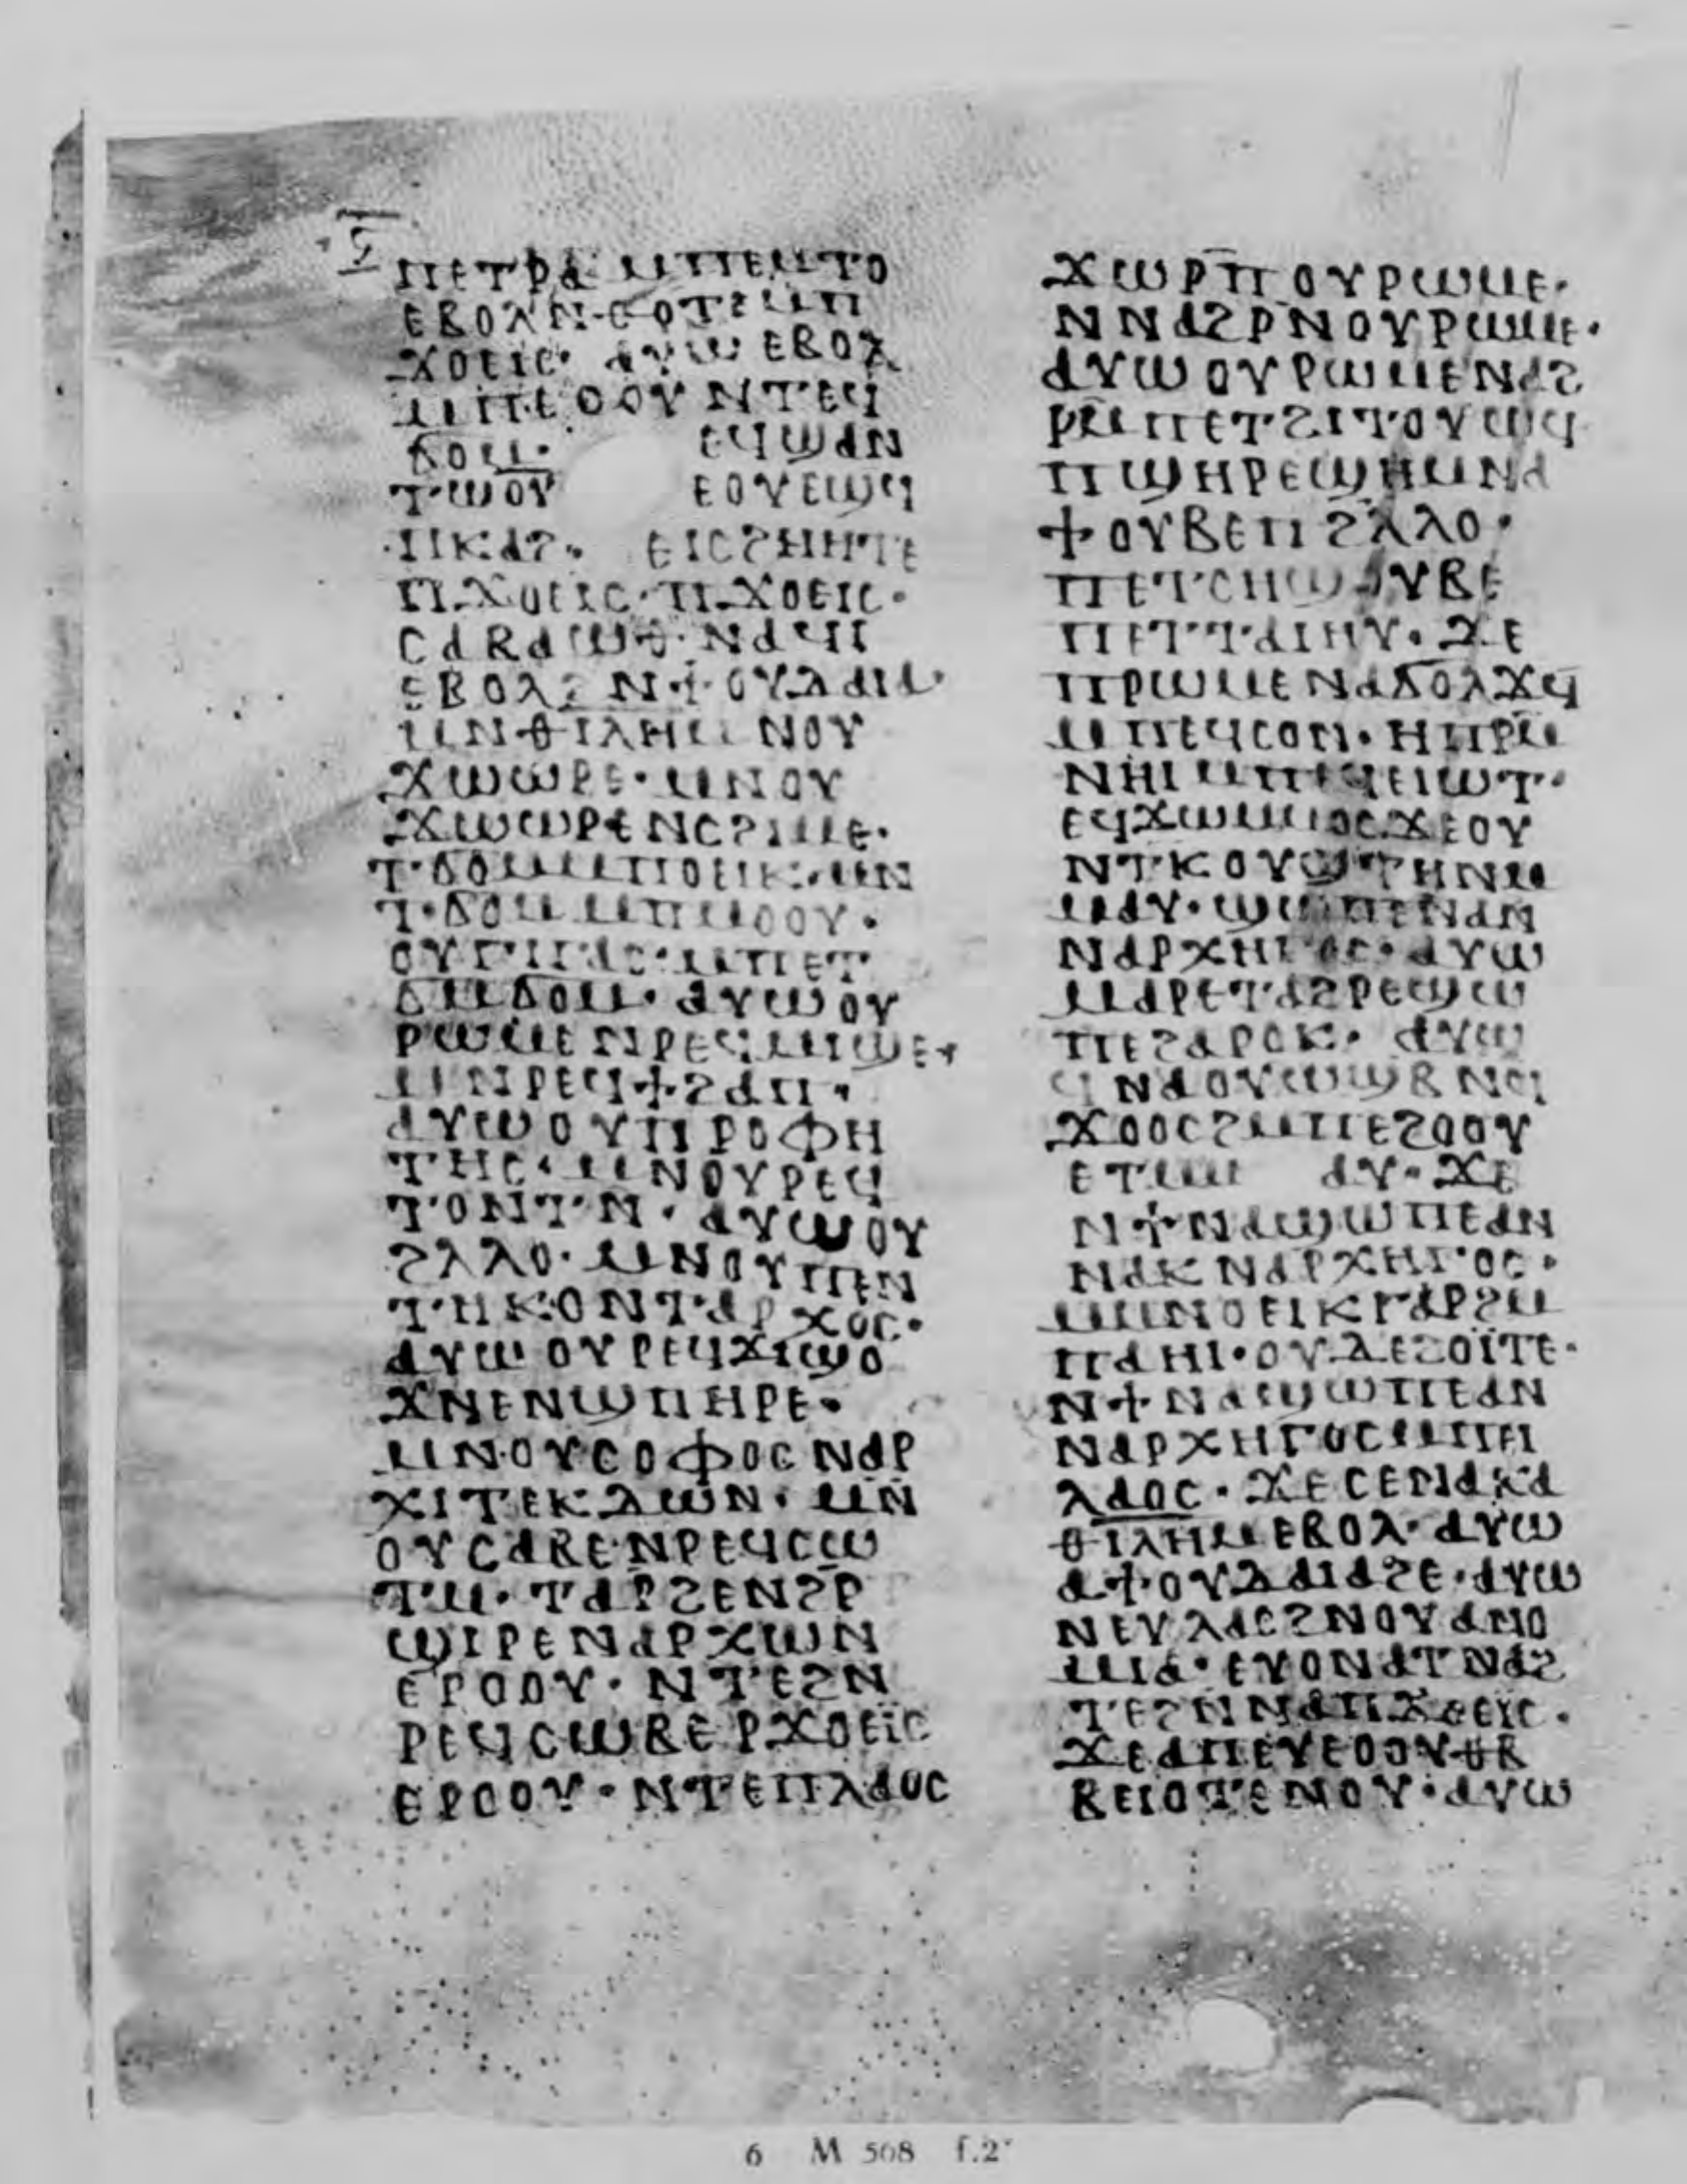 ⲋ
ⲡⲉⲧⲣⲁ ⲙⲡⲉⲙⲧⲟ
ⲉⲃⲟⲗⲛⲑⲟⲧⲉⲙⲡ
ϫⲟⲉⲓⲥ· ⲁⲩⲱ ⲉⲃⲟⲗ
ⲙⲡⲉⲟⲟⲩ ⲛⲧⲉϥ
ϭⲟⲙ· ⲉϥϣⲁⲛ
ⲧⲱⲟⲩ ⲉⲟⲩⲉϣϥ
ⲡⲕⲁϩ· ⲉⲓⲥϩⲏⲏⲧⲉ
ⲡϫⲟⲉⲓⲥ·ⲡϫⲟⲉⲓⲥ·
ⲥⲁⲃⲁⲱⲑ·ⲛⲁϥⲓ
ⲉⲃⲟⲗϩⲛϯⲟⲩⲇⲁⲓⲁ
ⲙⲛⲑⲓⲗⲏⲙ ⲛⲟⲩ
ϫⲱⲱⲣⲉ·ⲙⲛⲟⲩ
ϫⲱⲱⲣⲉⲛⲥϩⲓⲙⲉ·
ⲧϭⲟⲙⲙⲡⲟⲉⲓⲕ·ⲙⲛ
ⲧϭⲟⲙⲙⲡⲙⲟⲟⲩ·
ⲟⲩⲅⲓⲅⲁⲥ·ⲙⲡⲉⲧ
ϭⲙϭⲟⲙ·ⲁⲩⲱⲟⲩ
ⲣⲱⲙⲉⲛⲣⲉϥⲙⲓϣⲉ·
ⲙⲛⲣⲉϥϯϩⲁⲡ·
ⲁⲩⲱⲟⲩⲡⲣⲟⲫⲏ
ⲧⲏⲥ·ⲙⲛⲟⲩⲣⲉϥ
ⲧⲟⲛⲧⲛ·ⲁⲩⲱⲟⲩ
ϩⲗⲗⲟ·ⲙⲛⲟⲩⲡⲉⲛ
ⲧⲏⲕⲟⲛⲧⲁⲣⲭⲟⲥ·
ⲁⲩⲱⲟⲩⲣⲉϥϫⲓϣⲟ
ϫⲛⲉⲛϣⲡⲏⲣⲉ·
ⲙⲛⲟⲩⲥⲟⲫⲟⲥ ⲛⲁⲣ
ⲭⲓⲧⲉⲕⲇⲱⲛ·ⲙⲛ
ⲟⲩⲥⲁⲃⲉⲛⲣⲉϥⲥⲱ
ⲧⲙ·ⲧⲁⲣϩⲉⲛϩⲣ
ϣⲓⲣⲉⲛⲁⲣⲭⲱⲛ
ⲉⲣⲟⲟⲩ·ⲛⲧⲉϩⲛ
ⲣⲉϥⲥⲱⲃⲉⲣϫⲟⲉⲓⲥ
ⲉⲣⲟⲟⲩ·ⲛⲧⲉⲡⲗⲁⲟⲥ
ϫⲱⲣⲡ ⲟⲩⲣⲱⲙⲉ·
ⲛⲛⲁϩⲣⲛⲟⲩⲣⲱⲙⲉ·
ⲁⲩⲱ ⲟⲩⲣⲱⲙⲉⲛⲁϩ
ⲣⲙⲡⲉⲧϩⲓⲧⲟⲩⲱϥ
ⲡϣⲏⲣⲉϣⲏⲙⲛⲁ
ϯⲟⲩⲃⲉⲡϩⲗⲗⲟ·
ⲡⲉⲧⲥⲏϣ ⲟⲩⲃⲉ
ⲡⲉⲧⲧⲁⲓⲏⲩ·ϫⲉ
ⲡⲣⲱⲙⲉⲛⲁϭⲟⲗϫϥ
ⲙⲡⲉϥⲥⲟⲛ·ⲏⲡⲣⲙ
ⲛⲏⲓ ⲙⲡⲉϥⲉⲓⲱⲧ·
ⲉϥϫⲱⲙⲙⲟⲥϫⲉⲟⲩ
ⲛⲧⲕⲟⲩϣⲧⲏⲛⲙ
ⲙⲁⲩ·ϣⲱⲡⲉⲛⲁⲛ
ⲛⲁⲣⲭⲏⲅⲟⲥ·ⲁⲩⲱ
ⲙⲁⲣⲉⲧⲁϩⲣⲉϣⲱ
ⲡⲉϩⲁⲣⲟⲕ· ⲁⲩⲱ
ϥⲛⲁⲟⲩⲱϣⲃ ⲛϥ
ϫⲟⲟⲥϩⲙⲡⲉϩⲟⲟⲩ
ⲉⲧⲙⲙ ⲁⲩ·ϫⲉ
ⲛϯⲛⲁϣⲱⲡⲉⲁⲛ
ⲛⲁⲕ ⲛⲁⲣⲭⲏⲅⲟⲥ·
ⲙⲙⲛⲟⲉⲓⲕⲅⲁⲣϩⲙ
ⲡⲁⲏⲓ·ⲟⲩⲇⲉϩⲟⲓⲧⲉ·
ⲛϯⲛⲁϣⲱⲡⲉⲁⲛ
ⲛⲁⲣⲭⲏⲅⲟⲥⲙⲡⲉⲓ
ⲗⲁⲟⲥ·ϫⲉⲥⲉⲛⲁⲕⲁ
ⲑⲓⲗⲏⲙⲉⲃⲟⲗ·ⲁⲩⲱ
ⲁϯⲟⲩⲇⲁⲓⲁϩⲉ·ⲁⲩⲱ
ⲛⲉⲩⲗⲁⲥϩⲛⲟⲩⲁⲛⲟ
ⲙⲓⲁ·ⲉⲩⲟⲛⲁⲧⲛⲁϩ
ⲧⲉϩⲛⲛⲁⲡϫⲟⲉⲓⲥ·
ϫⲉⲁⲡⲉⲩⲉⲟⲟⲩⲑⲃ
ⲃⲉⲓⲟⲧⲉⲛⲟⲩ·ⲁⲩⲱ
6 M 508 f.2ᵛ